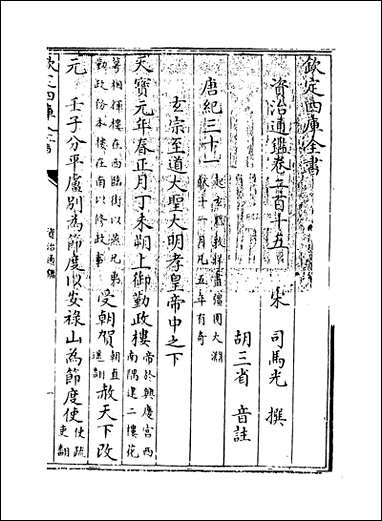 欽定四庫全書
資治通鑑卷二百十五
宋 司馬光 撰
胡三省 音註
唐紀三十一
起玄黓敦牂盡彊圉大淵
獻十一月凡五年有奇
玄宗至道大聖大明孝皇帝中之下
天寶元年春正月丁未朔上御勤政樓
帝於興慶宫西
南隅建二樓花
萼相輝樓在西臨街以燕兄弟
勤政務本樓在南以修政事
受朝賀
朝直
遥翻
赦天下改
元 壬子分平盧别為節度以安禄山為節度使
使疏
吏翻
欽定四庫全書
資治通鑑
一